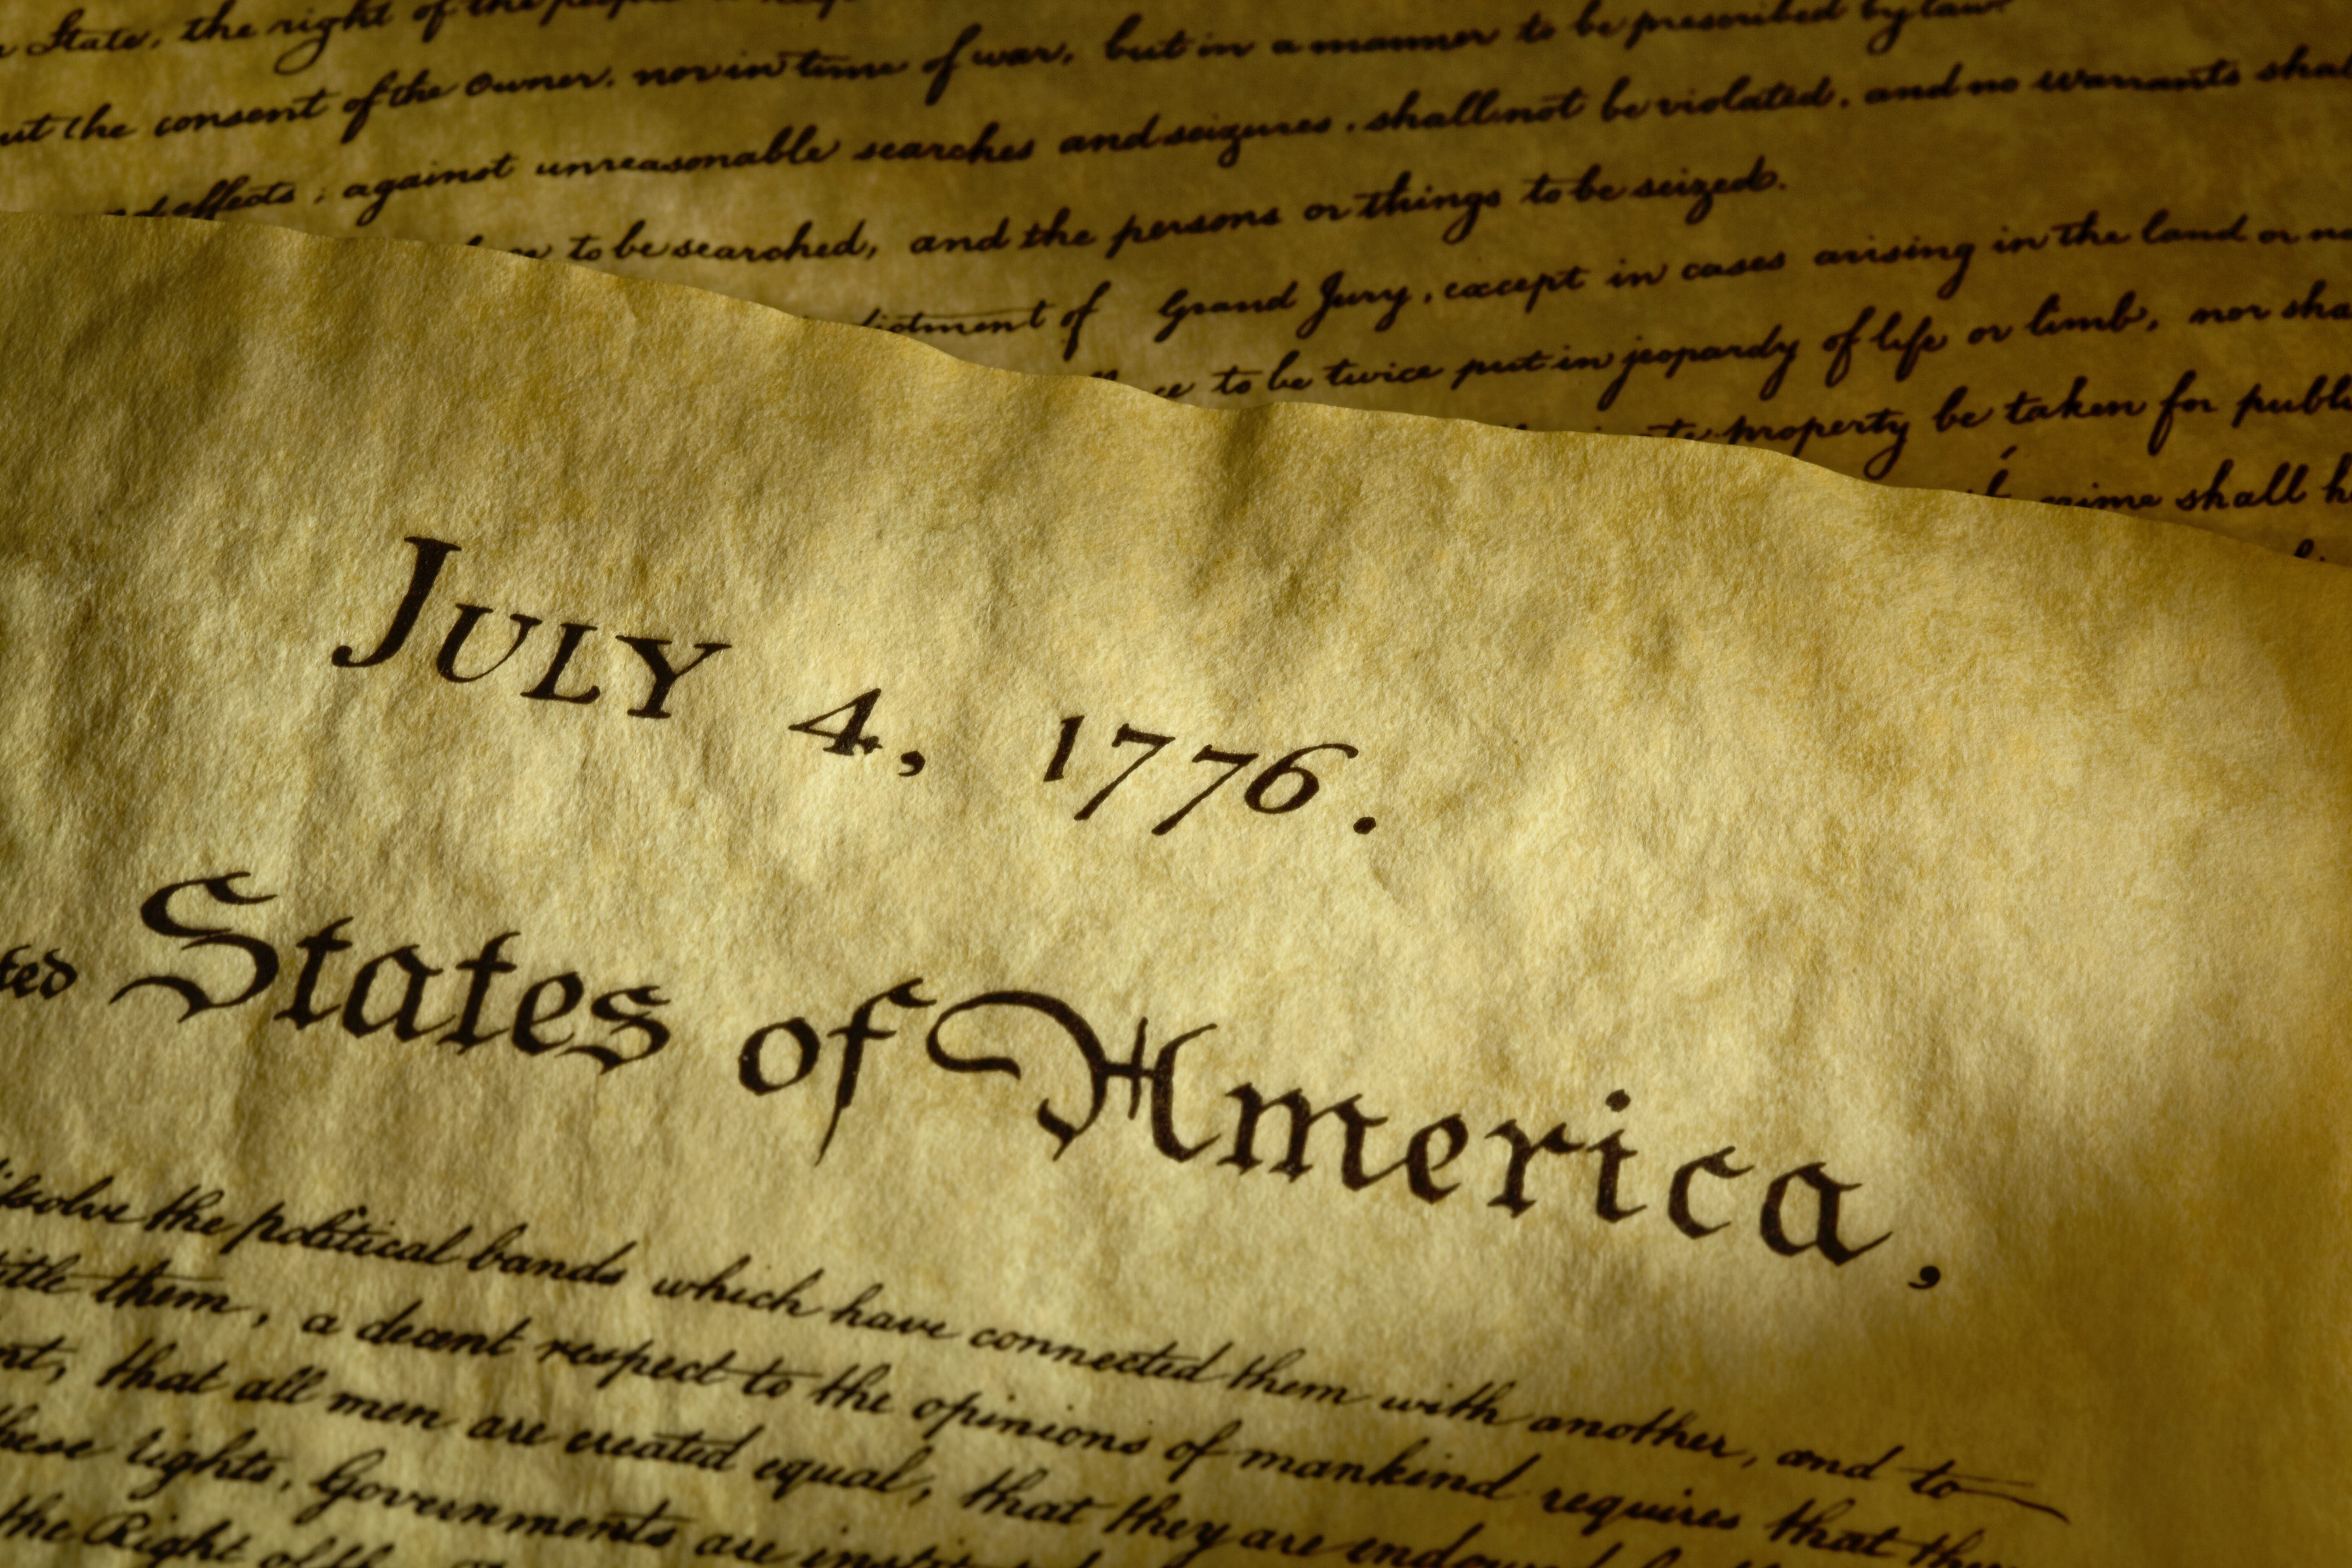 State, the right of the people
the consent of the Owner, nor in time of war, but in a manner to be prescribed by law.
effects, against unreasonable searches and seizures, shall not be violated, and no warrants shall
to be searched, and the persons or things to be seized.
of Grand Jury, except in cases arising in the land or
to be twice put in jeopardy of life or limb, nor
property be taken for
crime shall
JULY 4, 1776.
States of America,
the political bands which have connected them with another, and to
them, a decent respect to the opinions of mankind requires that they
that all men are created equal, that they are
rights, Governments are
the Right of